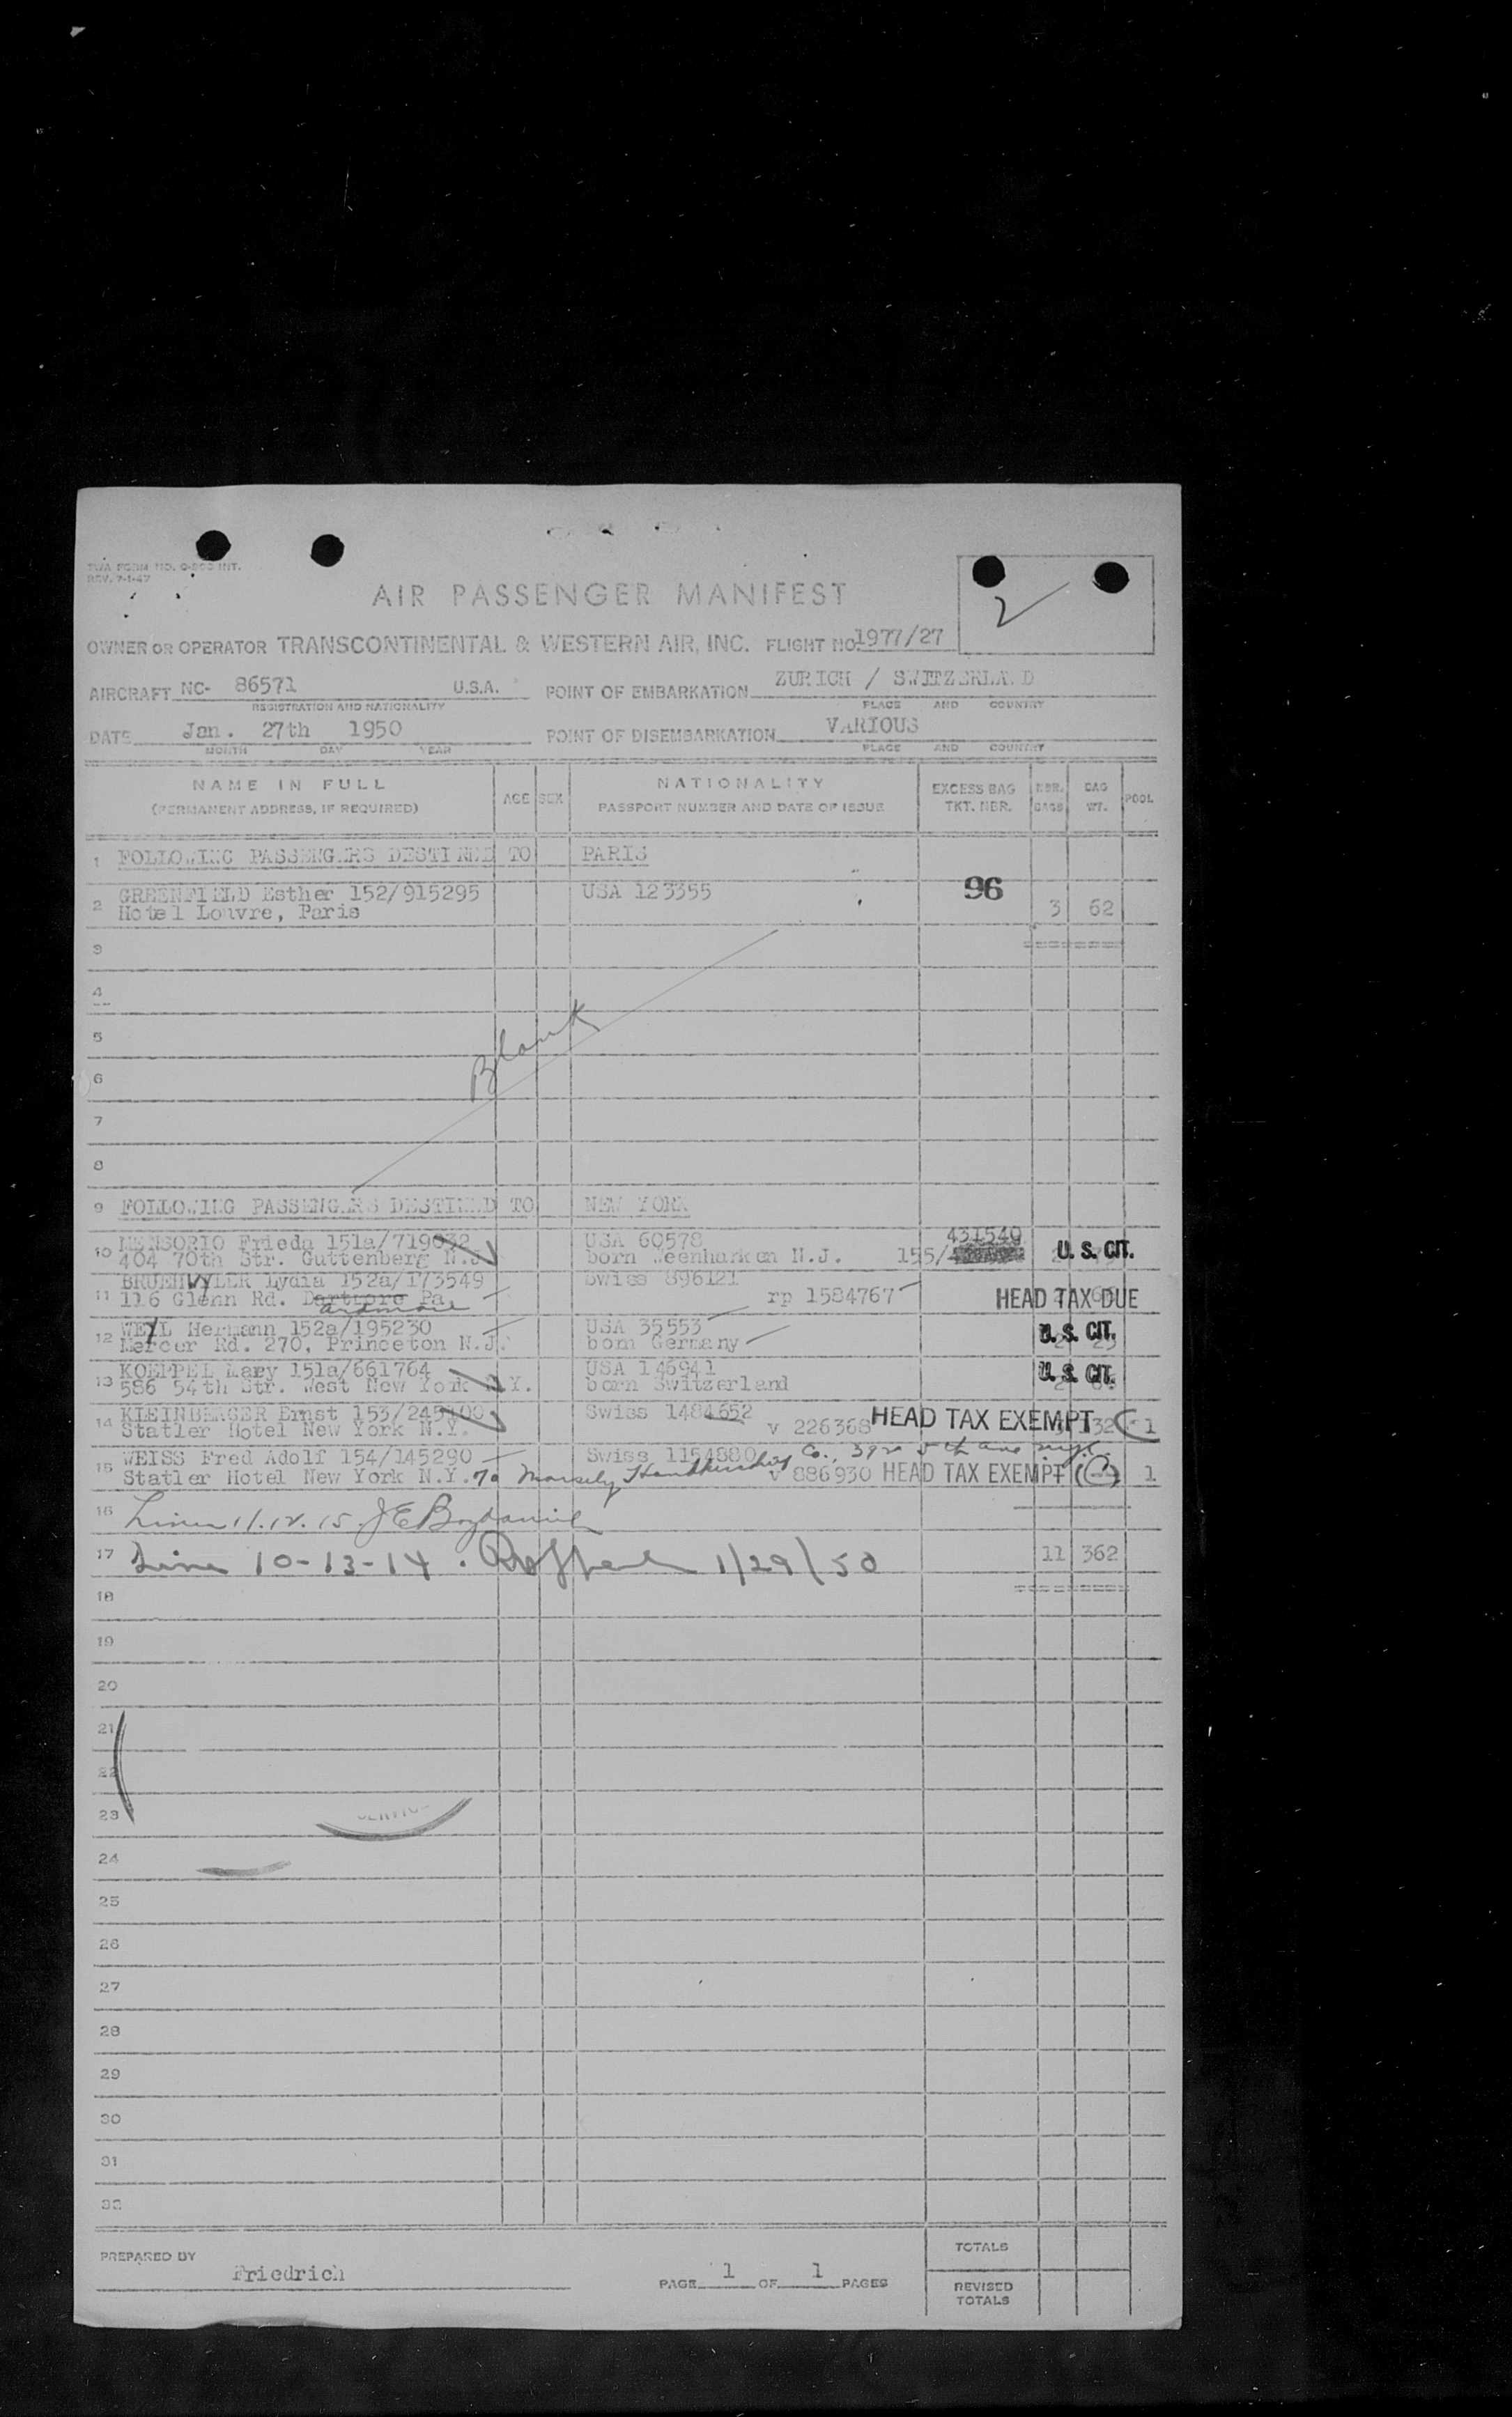 TWA FORM NO. INT.
REV. 7-1-47
AIR PASSENGER MANIFEST
2
OWNER OR OPERATOR TRANSCONTINENTAL & WESTERN AIR, INC. FLIGHT NO. 1977/27
AIRCRAFT NC- 86571 U.S.A. POINT OF EMBARKATION ZURICH / SWITZERLAND
REGISTRATION AND NATIONALITY PLACE AND COUNTRY
DATE Jan. 27th 1950 POINT OF DISEMBARKATION VARIOUS
MONTH DAY YEAR PLACE AND COUNTRY
NAME IN FULL AGE SEX NATIONALITY EXCESS BAG NBR. BAG POOL
(PERMANENT ADDRESS, IF REQUIRED) PASSPORT NUMBER AND DATE OF ISSUE TKT. NBR. BAGS WT.
1 FOLLOWING PASSENGERS DESTINED TO PARIS
2 GREENFIELD Esther 152/915295 USA 123355 96
Hotel Louvre, Paris 3 62
3
4
5
Blank
6
7
8
9 FOLLOWING PASSENGERS DESTINED TO NEW YORK
10 Frieda 151a/719032 USA 60578 431540
404 70th Str. Guttenberg N.J. born Weenharken N.J. 155/ U. S. CIT.
11 BRUEHWYLER Lydia 152a/173549 Swiss 896121
116 Glenn Rd. Pa. rp 1584767 HEAD TAX DUE
Ardmore
12 WEYL Hermann 152a/195230 USA 35553 U. S. CIT.
Mercer Rd. 270, Princeton N.J. born Germany
13 KOEPPEL Mary 151a/661764 USA 146941 U. S. CIT.
586 54th Str. West New York N.Y. born Switzerland
14 KLEINBERGER Ernst 153/245 Swiss 1484652
Statler Hotel New York N.Y. v 226368 HEAD TAX EXEMPT 132 1
15 WEISS Fred Adolf 154/145290 Swiss 1154880 Co., 392 5th ave nyc
Statler Hotel New York N.Y. v 886930 HEAD TAX EXEMPT 1
16 Lines 11.12.15.
17 Line 10-13-14. 1/29/50 11 362
18
19
20
21
22
23
24
25
26
27
28
29
30
31
32
PREPARED BY Friedrich PAGE 1 OF 1 PAGES TOTALS
REVISED
TOTALS